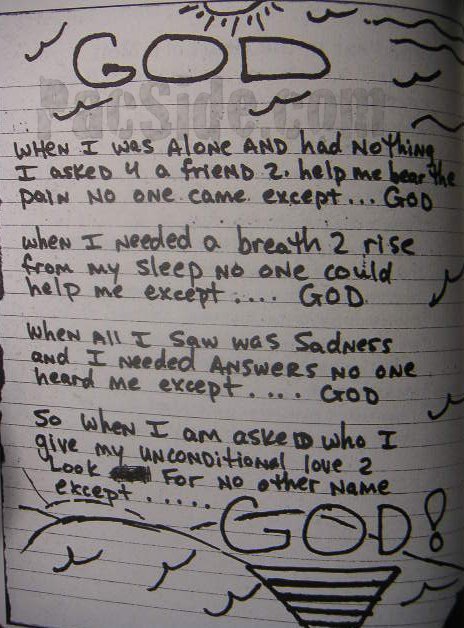 GOD
PacSide.com
WHEN I WAS ALONE AND had NOTHING
I ASKED 4 a friEND 2. help me bear the
pAIN NO ONE came except... GOD
when I NEEDED a breath 2 rise
from my SLEEP NO ONE could
help me except.... GOD.
WHEN All I SAW WAS SADNESS
and I NEEDED ANSWERS NO ONE
heard me except.... GOD
SO WHEN I AM ASKED WHO I
give my UNCONDITIONAL love 2
Look FOR NO OTHER NAME
except.....
GOD!